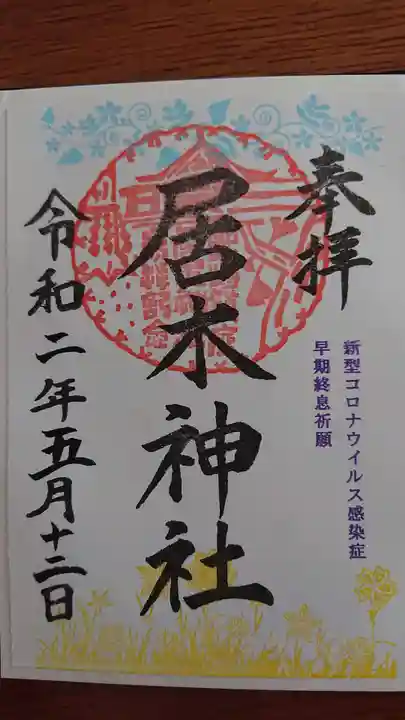 奉拝
新型コロナウイルス感染症
早期終息祈願
居木神社
令和二年五月十二日